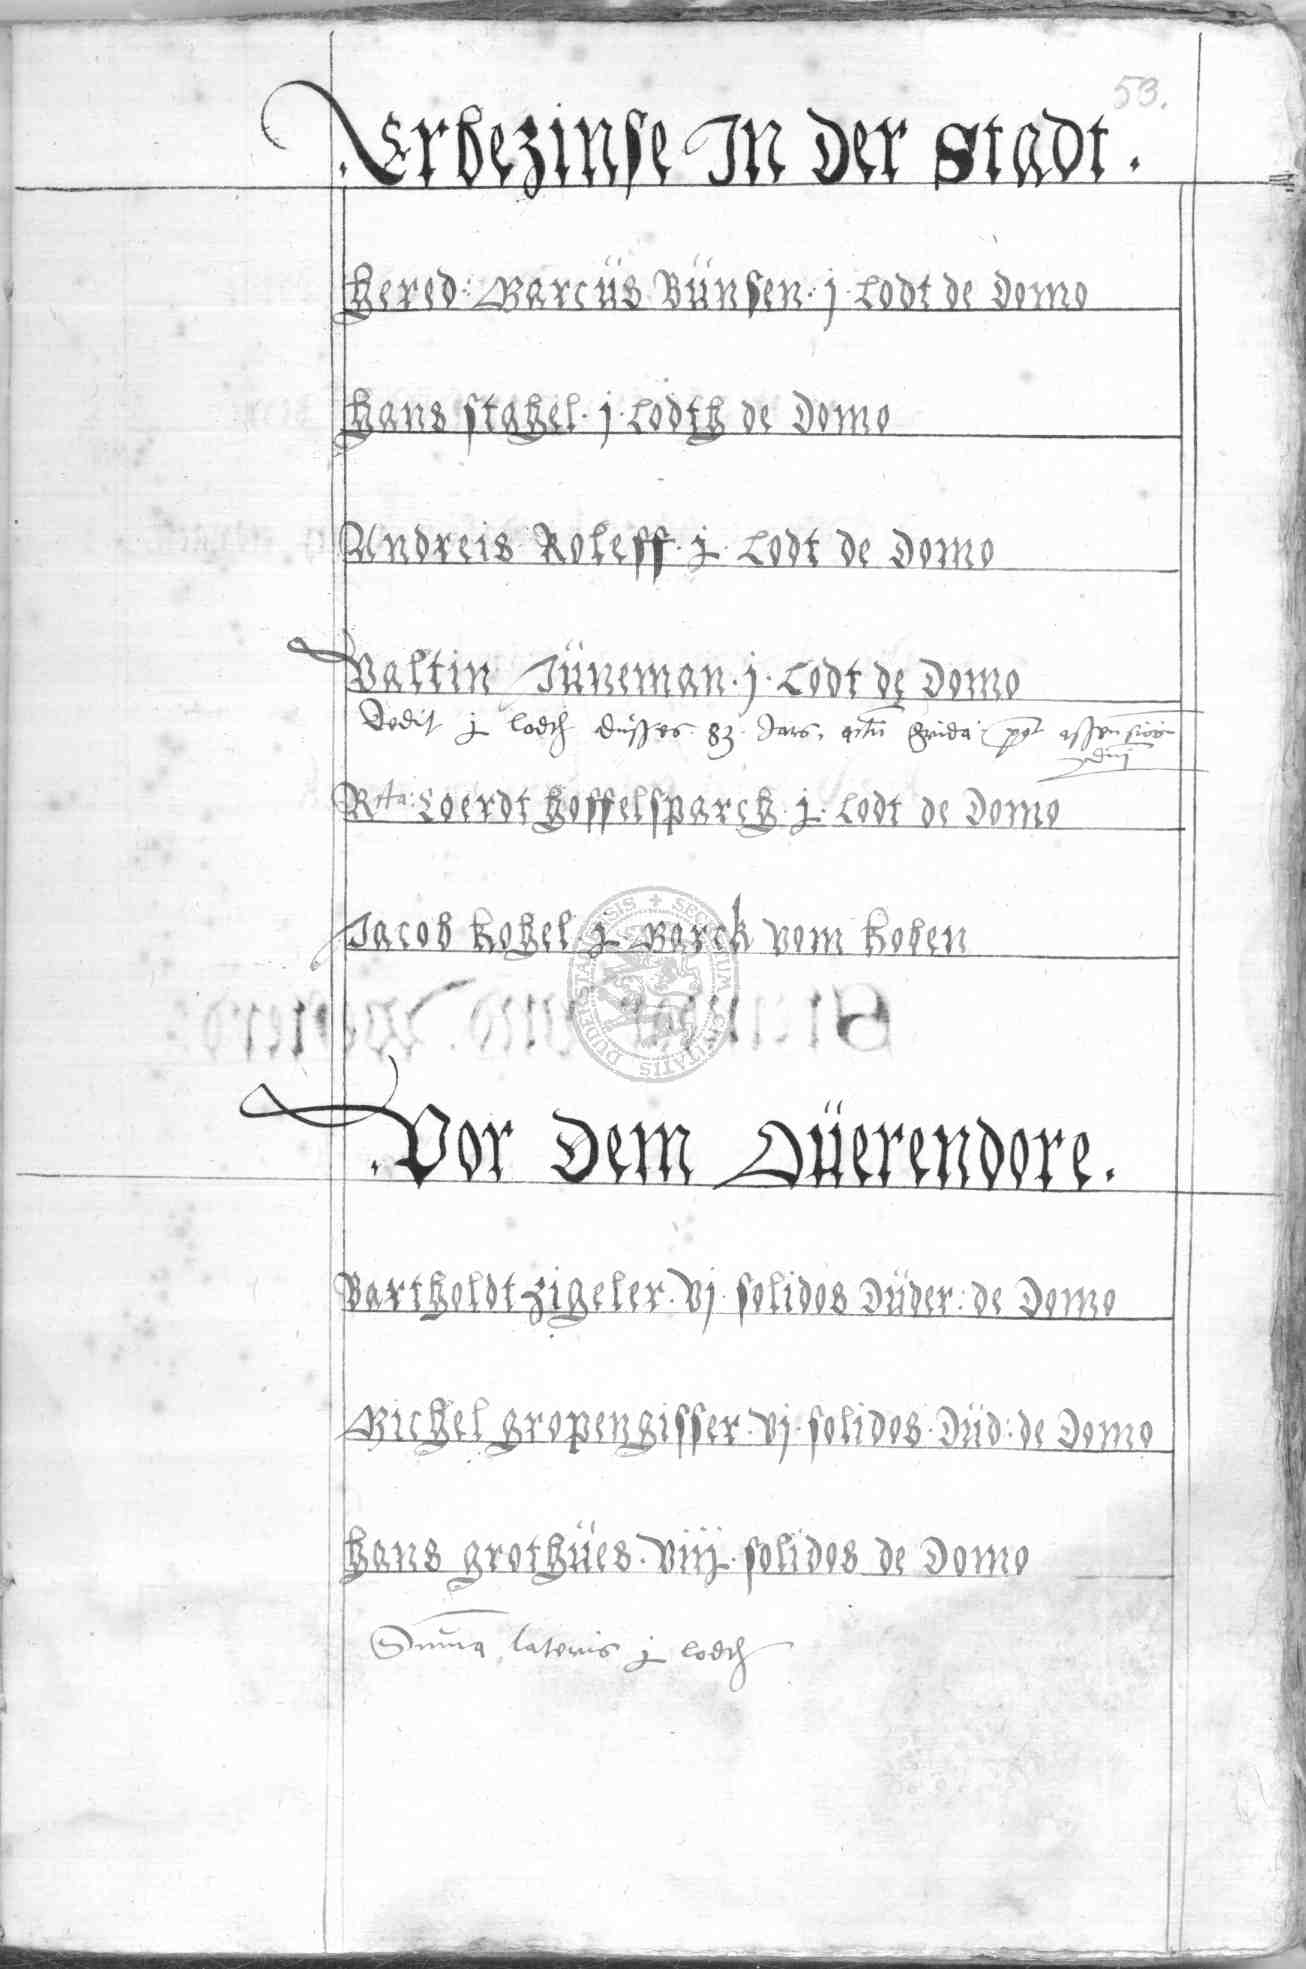 53.
. Erbezinse In der Stadt .
Hered: Marcüs Bünsen · j · Lodt de Domo
Hans stahel · j · Lodth de Domo
Andreis Roleff · j · Lodt de Domo
Valtin Jüneman · j · Lodt de Domo
Dedit j lodth düsses 83 Jars, actũ frida post assensionis
dnj
Rta: Coerdt Hoffelsparch · j · Lodt de Domo
Jacob Kohel j Marck vom Hoben
. Vor Dem Düerendore .
Bartholdt Zigeler · Vj · solidos Düder: de Domo
Michel gropengisser · Vj · solidos · Düd: de Domo
Hans grothües · Viij · solidos de Domo
Suma lateris j lodth
SECRETUM CIVITATIS DUDERSTADENSIS